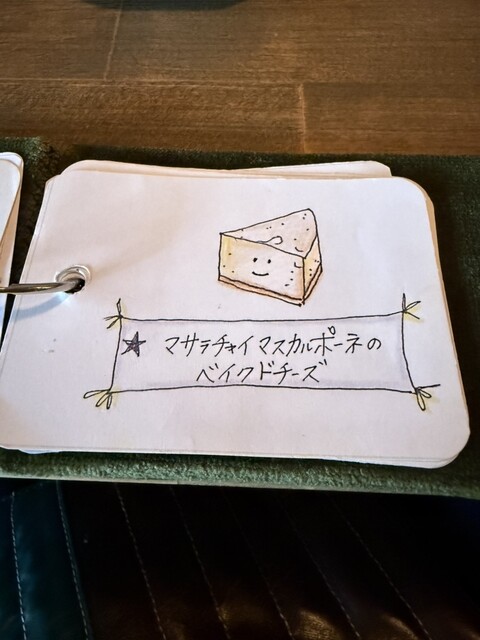 ★ マサラチャイマスカルポーネの
ベイクドチーズ